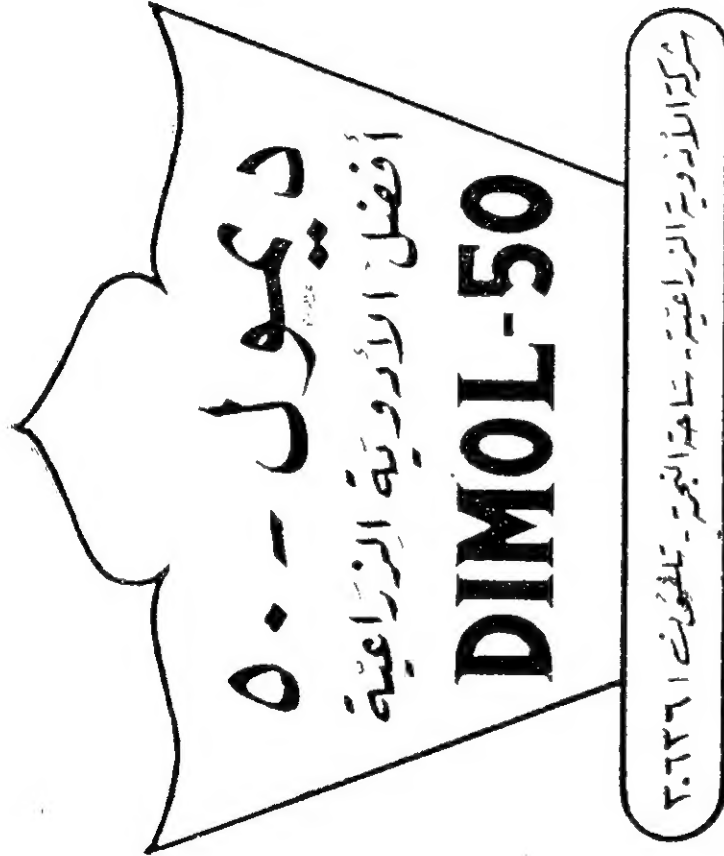 ديمول - ٥٠
أفضل الأدوية الزراعية
DIMOL-50
شركة الأدوية الزراعية - ساحة النجمة - تلفون ٢٠٦٢٦١